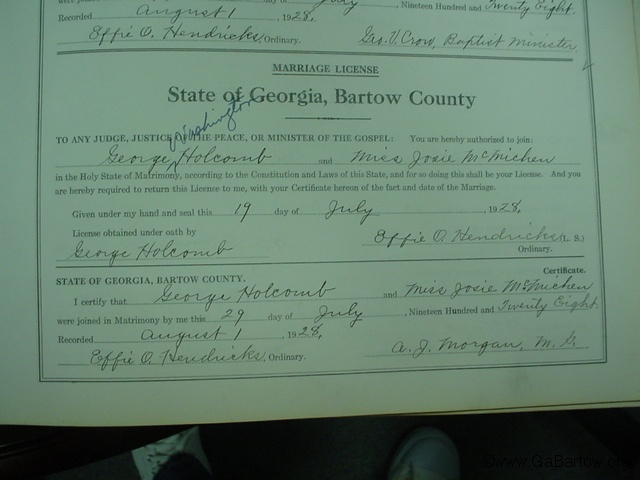 , Nineteen Hundred and Twenty Eight.
Recorded August 1, 1928,
Effie O. Hendricks, Ordinary. Geo. V. Crow, Baptist Minister,
MARRIAGE LICENSE
State of Georgia, Bartow County
Washington
TO ANY JUDGE, JUSTICE OF THE PEACE, OR MINISTER OF THE GOSPEL: You are hereby authorized to join:
George Holcomb and Miss Josie McMichen
in the Holy State of Matrimony, according to the Constitution and Laws of this State, and for so doing this shall be your License. And you
are hereby required to return this License to me, with your Certificate hereon of the fact and date of the Marriage.
Given under my hand and seal this 19 day of July, 1928,
License obtained under oath by Effie O. Hendricks (L. S.)
George Holcomb Ordinary.
Certificate.
STATE OF GEORGIA, BARTOW COUNTY.
I certify that George Holcomb and Miss Josie McMichen
were joined in Matrimony by me this 29 day of July, Nineteen Hundred and Twenty Eight.
Recorded August 1, 1928,
Effie O. Hendricks, Ordinary. A. J. Morgan, M. G.